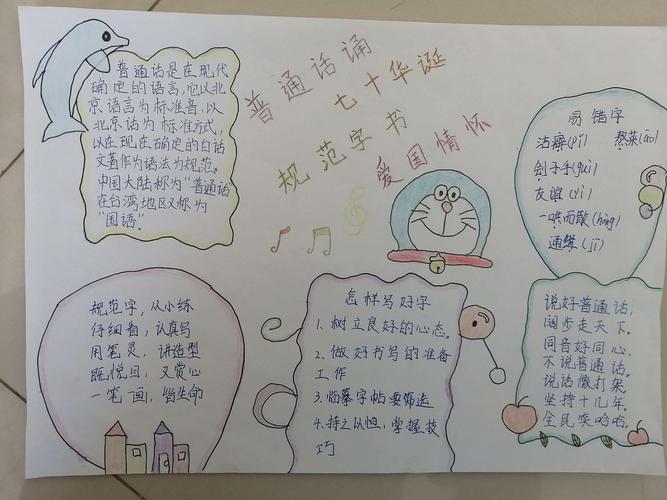 普通话诵
七十华诞
规范字书
爱国情怀
普通话是在现代
确定的语言,它以北
京语言为标准音,以
北京话为标准方式,
以在现在确定的白话
文著作为语法为规范。
中国大陆称为"普通话
在台湾地区又称为
"国语".
易错字
沽癖(pǐ) 熬菜(āo)
刽子手(guì)
友谊(yì)
一哄而散(hòng)
通缉(jī)
规范字,从小练
仔细看,认真写
用笔灵,讲造型
既悦目,又赏心
一笔一画,皆生命
怎样写好字
1.树立良好的心态。
2.做好书写的准备
工作
3.临摹字帖要筛选
4.持之以恒,掌握技
巧
说好普通话,
阔步走天下.
同音好同心,
不说普通话.
说话像打架.
坚持十几年.
全民笑哈哈.